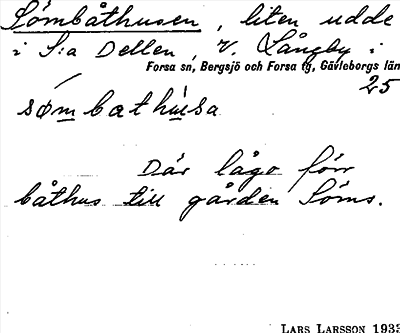 Sömbåthusen, liten udde
i S:a Dellen, V. Långby i
Forsa sn, Bergsjö och Forsa tg, Gävleborgs län
25
sømbathu̇sa
Där lågo förr
båthus till gården Söms.
LARS LARSSON 1933